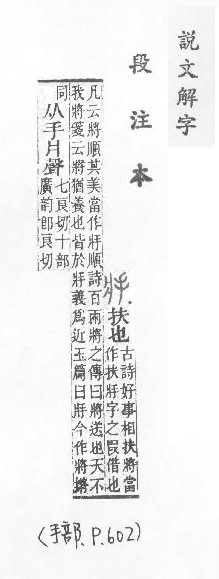 說文解字
段注本
扶也
古詩好事相扶將當
作扶𢪇字之叚借也
凡云將順其美當作𢪇順詩百兩將之傳曰將送也天不
我將箋云將猶養也皆於𢪇義為近玉篇曰𢪇今作將𢪇
同
从手爿聲
七良切十部
廣韵卽良切
(手部.P.602)